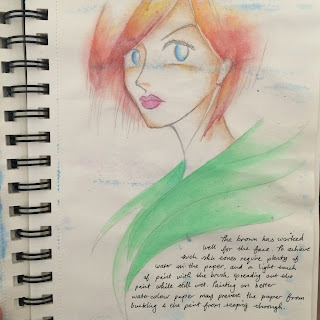 The brown has worked
well for the face. To achieve
such skin tones require plenty of
water on the paper, and a light touch
of paint with the brush, spreading out the
paint while still wet. Painting on better
watercolour paper may prevent the paper from
buckling & the paint from seeping through.